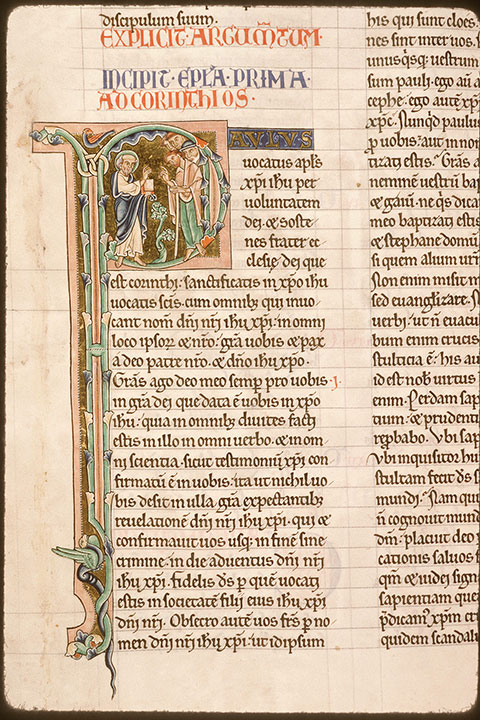 discipulum suum.
EXPLICIT · ARGUM̄TUM ·
INCIPIT · EPL̄A · PRIMA ·
AD CORINTHIOS ·
PAVLVS
uocatus apl̄s
xp̄i ih̄u per
uoluntatem
dei · & soste
nes frater ec
clesię dei que
est corinthi · sanctificatis in xp̄o ih̄u
uocatis sc̄is · cum omnibꝫ qui inuo
cant nom̄ dn̄i nr̄i ih̄u xp̄i · in omni
loco ipsoꝝ & nr̄o · gr̄a uobis & pax
a deo patre nr̄o · & dn̄o ih̄u xp̄o ·
Gr̄as ago deo meo semp̱ pro uobis · I ·
in gr̄a dei que data ē uobis in xp̄o
ih̄u · quia in omnibꝫ diuites facti
estis in illo in omni uerbo · & in om
ni scientia · sicut testimoniū xp̄i con
firmatū ē in uobis · ita ut nichil uo
bis desit in ulla gr̄a expectantibꝫ
reuelationē dn̄i nr̄i ih̄u xp̄i · qui &
confirmauit uos usqꝫ in finē sine
crimine · in die aduentus dn̄i nr̄i
ih̄u xp̄i · fidelis ds̄ p̱ quē uocati
estis in societatē filij eius ih̄u xp̄i
dn̄i nr̄i · Obsecro autē uos fr̄s p̱ no
men dn̄i nr̄i ih̄u xp̄i · ut idipsum
his qui sunt cloes ·
nes sint inter uos ·
unusqꝫsqꝫ · uestrum
sum pauli · ego aū
cephe · ego autē
xp̄c · Nunqd paulus
p̱ uobis · aut in
tizati estis · Gr̄as
neminē uestrū
& gaiū · ne qs̄ dica
meo baptizati
& stephane domū
si quem alium
Non enim misit
sed euanglizare ·
uerbi · ut n̄ euacu
bum enim crucis
stulticia ē · his
id est nob̄ uirtus
enim · Perdam
tium · & prudenti
reprobabo · Vbi
Vbi inquisitor
stultam fecit ds̄
mundi · Nam
n̄ cognouit mun
dm̄ · placuit deo
cationis saluos
qm̄ & iudei sign
sapientiam que
p̱dicam᾽ xp̄m
quidem scandali